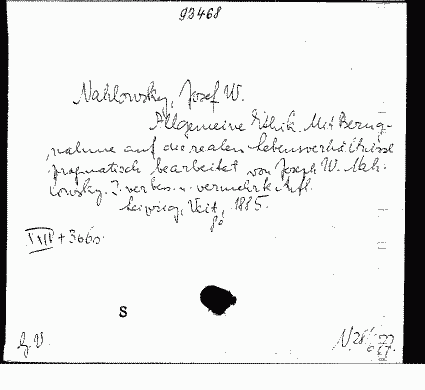 93468
Nahlowsky, Josef W.
Allgemeine Ethik. Mit Bezug-
nahme auf die realen Lebensverhältnisse
pragmatisch bearbeitet von Joseph W. Nah-
lowsky. 2. verbes. u. vermehrte Aufl.
Leipzig, Veit, 1885.
8o
XVI + 366 s.
S